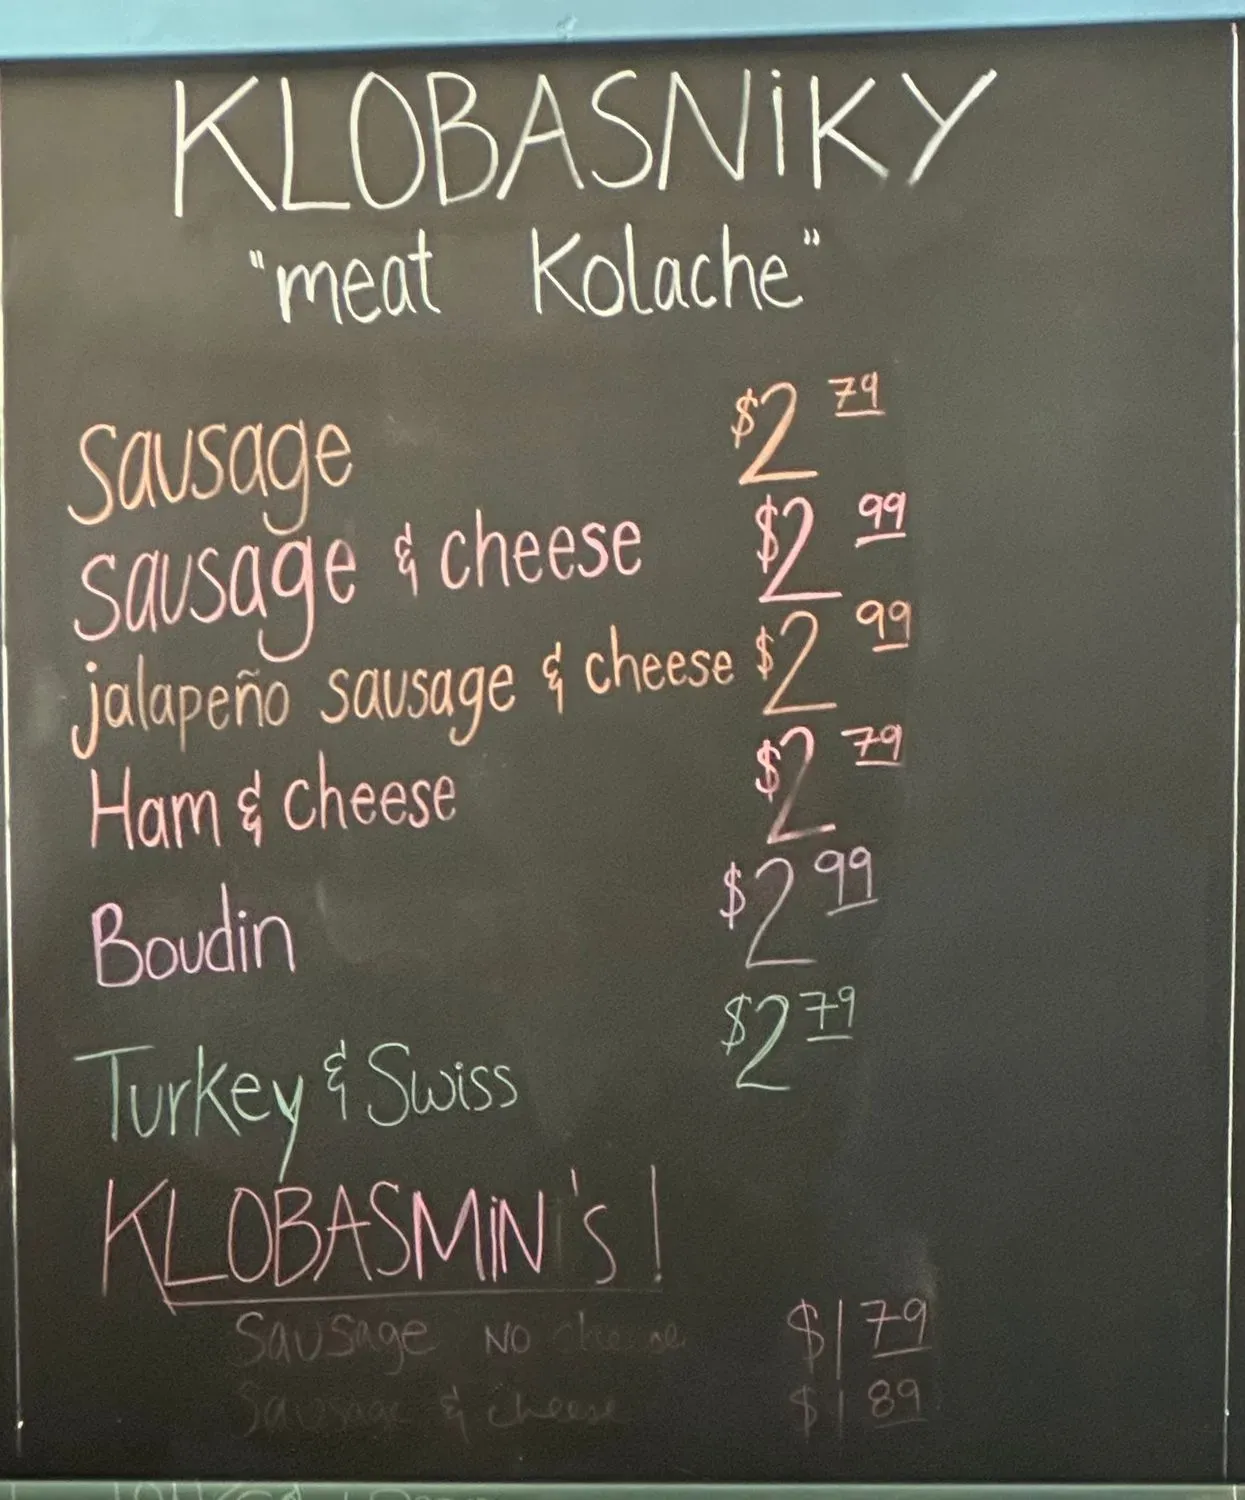 KLOBASNiKY
"meat Kolache"
Sausage $2 79
Sausage & cheese $2 99
jalapeño sausage & cheese $2 99
Ham & cheese $2 79
Boudin $2 99
Turkey & Swiss $2 79
KLOBASMiN's!
Sausage NO cheese $1 79
Sausage & cheese $1 89